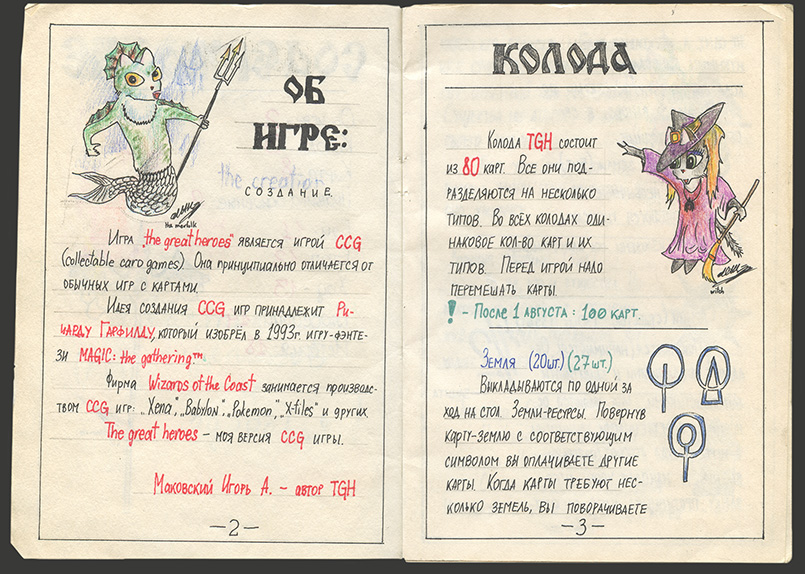 ОБ
ИГРЕ:
the creation
СОЗДАНИЕ.
the merfolk
Игра „the great heroes" является игрой CCG
(collectable card games). Она принципиально отличается от
обычных игр с картами.
Идея создания CCG игр принадлежит Ри-
чарду Гарфилду, который изобрёл в 1993г. игру-фэнте-
зи MAGIC: the gathering™.
Фирма Wizards of the Coast занимается производс-
твом CCG игр: „Xena", „Babylon", „Pokemon", „X-files" и других.
The great heroes – моя версия CCG игры.
Маковский Игорь А. – автор TGH
–2–
КОЛОДА
Колода TGH состоит
из 80 карт. Все они под-
разделяются на несколько
типов. Во всех колодах оди-
наковое кол-во карт и их
типов. Перед игрой надо
перемешать карты.
witch
! - После 1 августа: 100 карт.
Земля (20шт.) (27шт.)
Выкладываются по одной за
ход на стол. Земли-ресурсы. Повернув
карту-землю с соответствующим
символом вы оплачиваете другие
карты. Когда карты требуют нес-
колько земель, вы поворачиваете
–3–